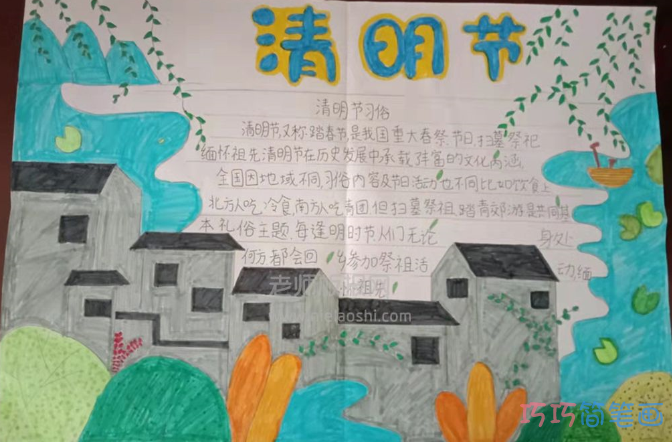 清明节
清明节习俗
清明节又称踏春节是我国重大春祭节日,扫墓祭祀
缅怀祖先清明节在历史发展中承载了丰富的文化内涵
全国因地域不同,习俗内容及节日活动也不同比如饮食上
北方人吃冷食,南方人吃青团但扫墓祭祖,踏青郊游是共同基
本礼俗主题,每逢明时节,人们无论 身处
何方都会回 乡参加祭祖活 动,缅
祖先
老师
laoshi.com
巧巧简笔画